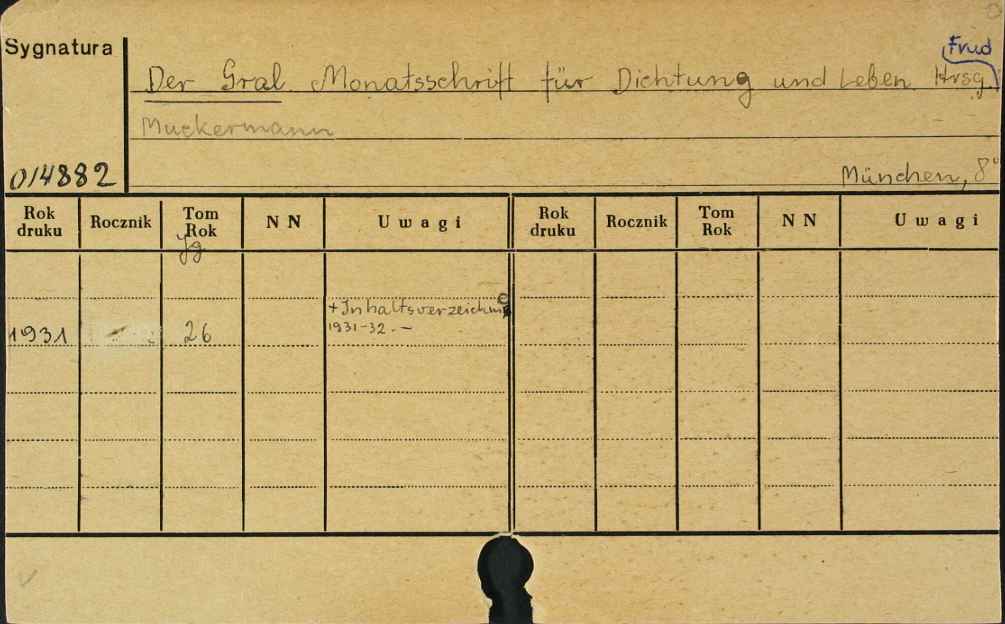 Sygnatura
Der Gral Monatsschrift für Dichtung und Leben Hrsg.
Muckermann
014882
München, 8°
Rok druku Rocznik Tom Rok NN Uwagi Rok druku Rocznik Tom Rok NN Uwagi
Jg
+Inhaltsverzeichnis
1931 26 1931-32.—